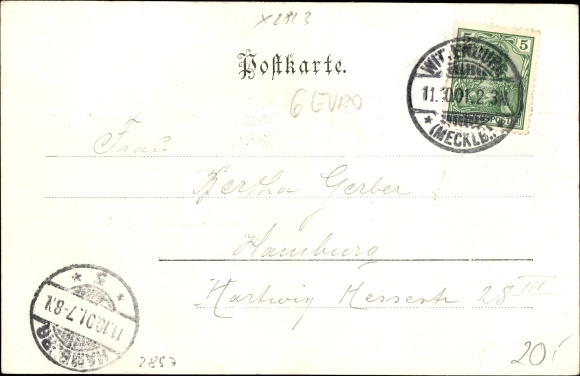 x 2813
Postkarte.
5 5
WITTENBURG
11.10.01.2-3N
(MECKLB.)
6 EURO
Frau
Bertha Gerber
Hamburg
Hartwig Hessestr 28 III
5
11.10.01.7-8N.
HAMBURG
2857
20,